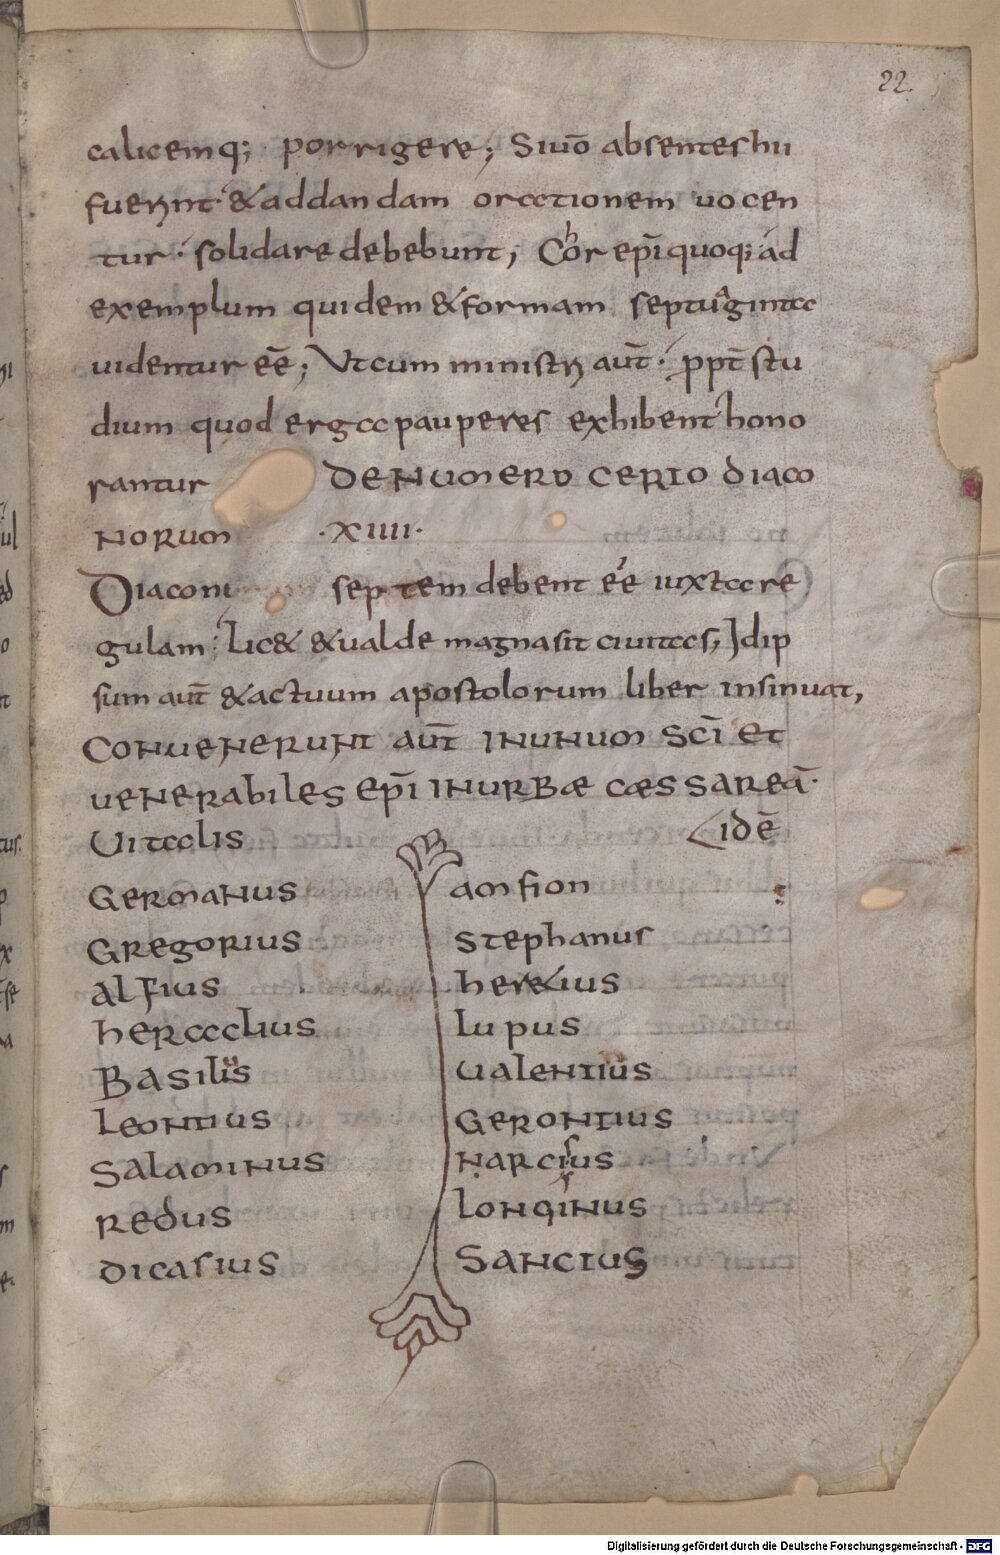 22.
calicemq; porrigere; Siuō absentes hii
fuerint· & ad dandam orationem uocen
tur· solidare debebunt; Chor epī quoq; ad
exemplum quidem & formam septuaginta
uidentur eē; Ut cum ministri aut̄· ꝓpt̄ stu
dium quod erga pauperes exhibent hono
rantur DE NUMERO CERTO DIACO
NORUM ·XIIII·
Diaconi septem debent eē iuxta re
gulam; lic& & ualde magna sit ciuitas; Idip
sum aut̄ & actuum apostolorum liber insinuat,
CONUENERUNT AUT̄ IN UNUM SCĪ ET
UENERABILES EPĪ IN URBAE CAESSAREĀ·
UITALIS
GERMANUS
GREGORIUS
ALFIUS
HERACLIUS
BASILIUS
LEONTIUS
SALAMINUS
REDUS
DICASIUS
IDĒ
AMFION
STEPHANUS
LUPUS
UALENTIUS
GERONTIUS
NARCISUS
LONGINUS
SANCTUS
Digitalisierung gefördert durch die Deutsche Forschungsgemeinschaft - DFG